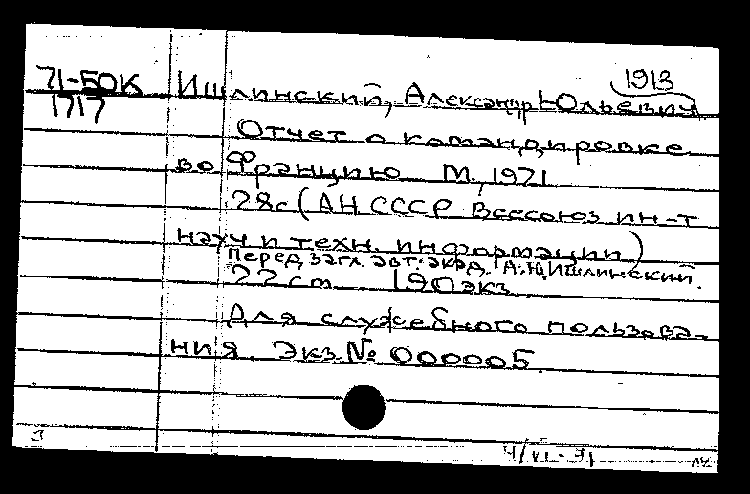 1913
71-БОК Ишлинский, Александр Юльевич
1717
Отчет о командировке
во Францию М, 1971
28с (АН СССР Всесоюз ин-т
науч и техн. информации)
Перед загл. авт: акад. А.Ю. Ишлинский.
22 cm 190 экз
Для служебного пользова-
ния. Экз № 000005
4/VI-71